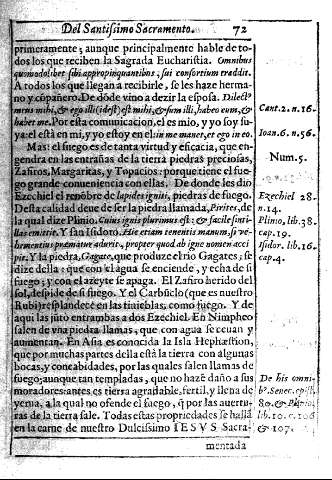 Del Santissimo Sacramento. 72
primeramente; aunque principalmente hable de to-
dos los que reciben la Sagrada Eucharistia. Omnibus
quomodolibet sibi appropinquantibus, sui consortium tradit.
A todos los que llegan a recibirle, se les haze herma-
no y cõpañero. De dõde vino a dezir la esposa. Dilect⁹
meus mihi, & ego illi (idest) est mihi, & sum illi, habeo eum, &
habet me. Por esta comunicacion, el es mio, y yo soy su-
ya: el està en mi, y yo estoy en el: in me manet, et ego in eo.
Mas: el fuego es de tanta virtud y eficacia, que en-
gendra en las entrañas de la tierra piedras preciosas,
Zafiros, Margaritas, y Topacios: porque tiene el fue-
go grande conueniencia con ellas. De donde les dio
Ezechiel el renõbre de lapides igniti, piedras de fuego.
Desta calidad deue de ser la piedra llamada, Pirites, de
la qual dize Plinio. Cuius ignis plurimus est: & facile scintil-
las emittit. Y san Isidoro. Hic etiam tenentis manum, si ve-
hementius prematur adurit, propter quod ab igne nomen acci-
pit. Y la piedra, Gagate, que produze el rio Gagates; se
dize della: que con el agua se enciende, y echa de si
fuego; y con el azeyte se apaga. El Zafiro herido del
sol, despide de si fuego. Y el Carbũclo (que es nuestro
Rubi) resplandece en las tinieblas, como fuego. Y de
aqui las jũtò entrambas a dos Ezechiel. En Nimpheo
salen de vna piedra llamas, que con agua se ceuan y
aumentan. En Asia es conocida la Isla Hephæstion,
que por muchas partes della està la tierra con algunas
bocas, y concabidades, por las quales salen llamas de
fuego; aunque tan templadas, que no hazẽ daño a sus
moradores: antes es tierra agradable, fertil, y llena de
yerua, a la qual no ofende el fuego, q̃ por las auertu-
ras de la tierra sale. Todas estas propriedades se hallã
en la carne de nuestro Dulcissimo IESVS Sacra-
mentada
Cant. 2. n. 16.
Ioan. 6. n. 56.
Num. 5.
Ezechiel 28.
n. 14.
Plinio, lib. 38.
cap. 19.
Isidor. lib. 16.
cap. 4.
De his omni-
b⁹ Senec. epist.
lib. 10. c. 106
& 107.